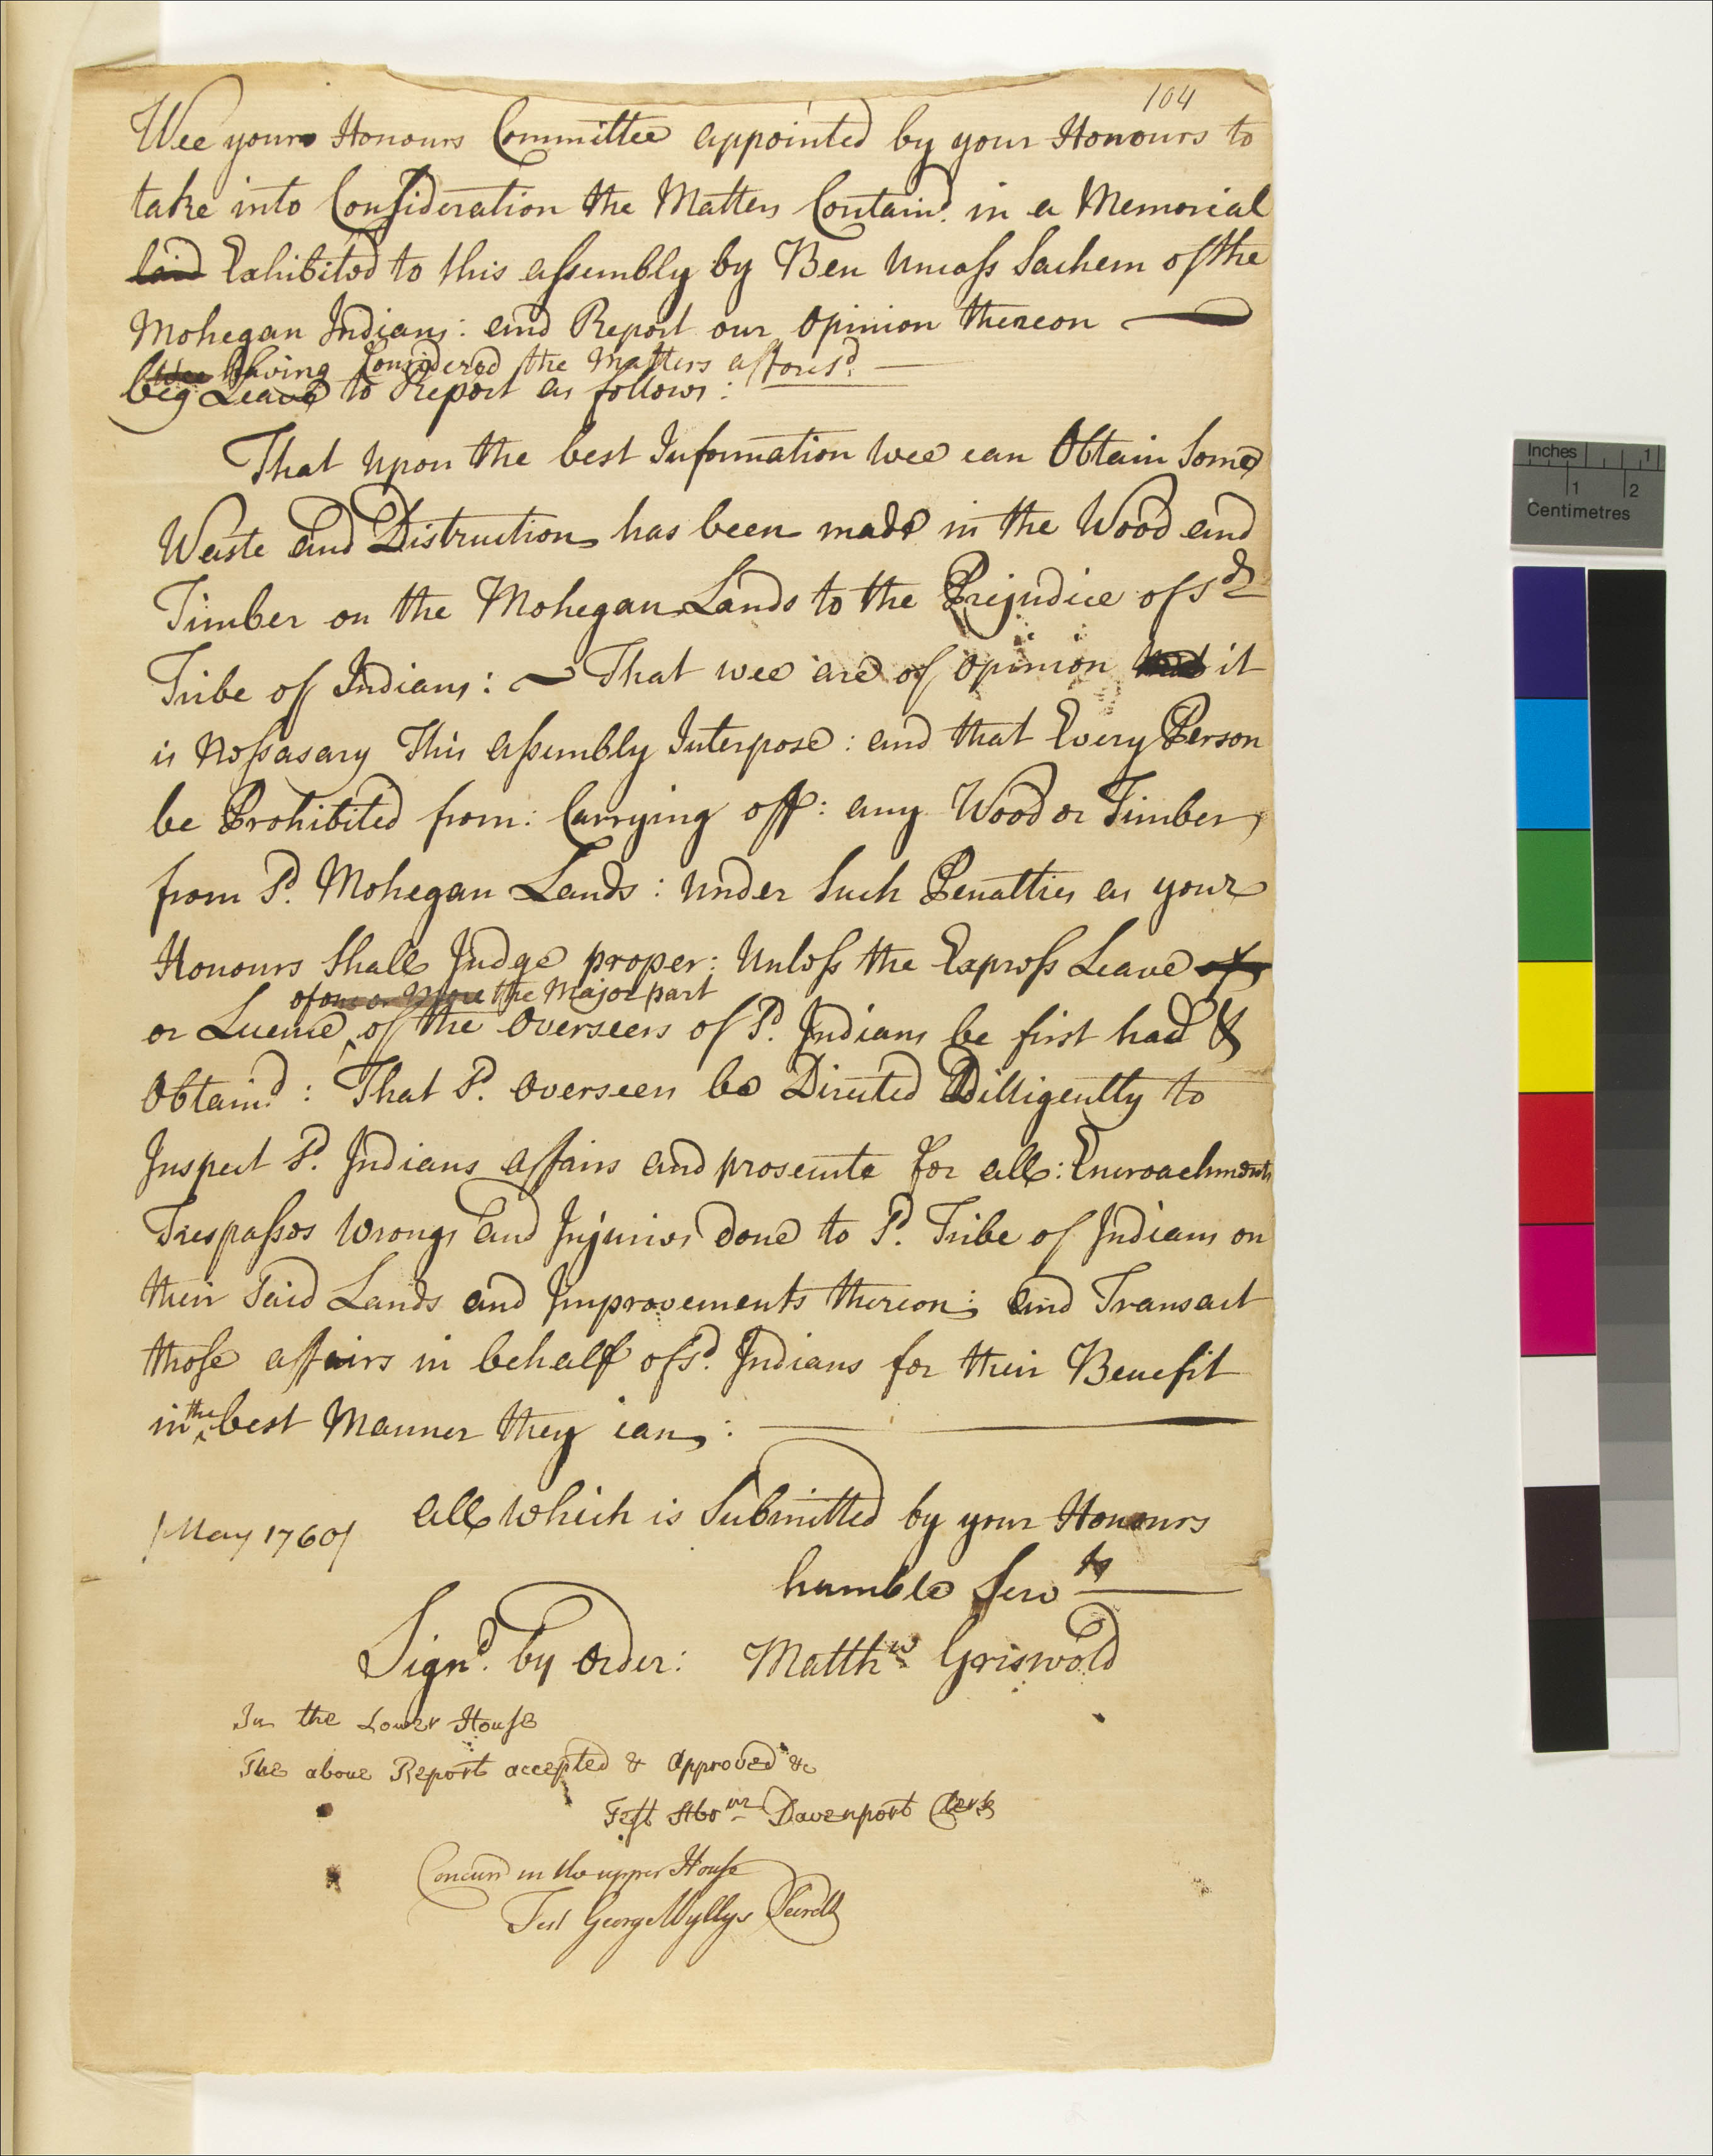 104
Wee yours Honours Committee appointed by your Honours to
take into Consideration the Matters Contain'd in a Memorial
laid Exhibited to this assembly by Ben Uncass Sachem of the
Mohegan Indians: and Report our Opinion thereon
Wee having Considered the Matters afforesd.
beg Leave to Report as follows:
That upon the best Information wee can Obtain Some
Waste and Distruction has been made in the Wood and
Timber on the Mohegan Lands to the Prejudice of sd.
Tribe of Indians: That wee are of opinion that it
is Nessasary This assembly Interpose: and that Every Person
be Prohibited from: Carrying off: any Wood or Timber,
from Sd. Mohegan Lands: under Such Penalties as your
Honours Shall Judge proper: Unless the Express Leave of
of one or More the Major part
or Lucence of the Overseers of Sd. Indians be first had &
Obtaind: That Sd. Overseers be Directed Dilligently to
Inspect Sd. Indians affairs and prosecute for all: Encroachments
Trespasses Wrongs and Injuries done to Sd. Tribe of Indians on
their Said Lands and Improvements thereon: and Transact
those affairs in behalf of sd. Indians for their Benefit
in the best Manner they can:
all which is Submitted by your Honours
/May 1760/
humble Servts
Signd. by order: Matthw Griswold
In the Lower House
The above Report accepted & Approved &c
Test Abrm Davenport Clerk
Concurd in the upper House
Test George Wyllys Secrety